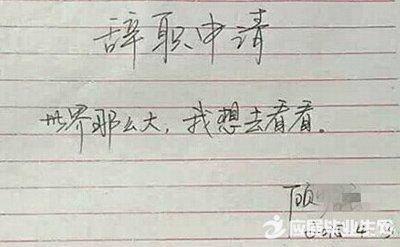 辞职申请
世界那么大，我想去看看。
顾
应届毕业生网